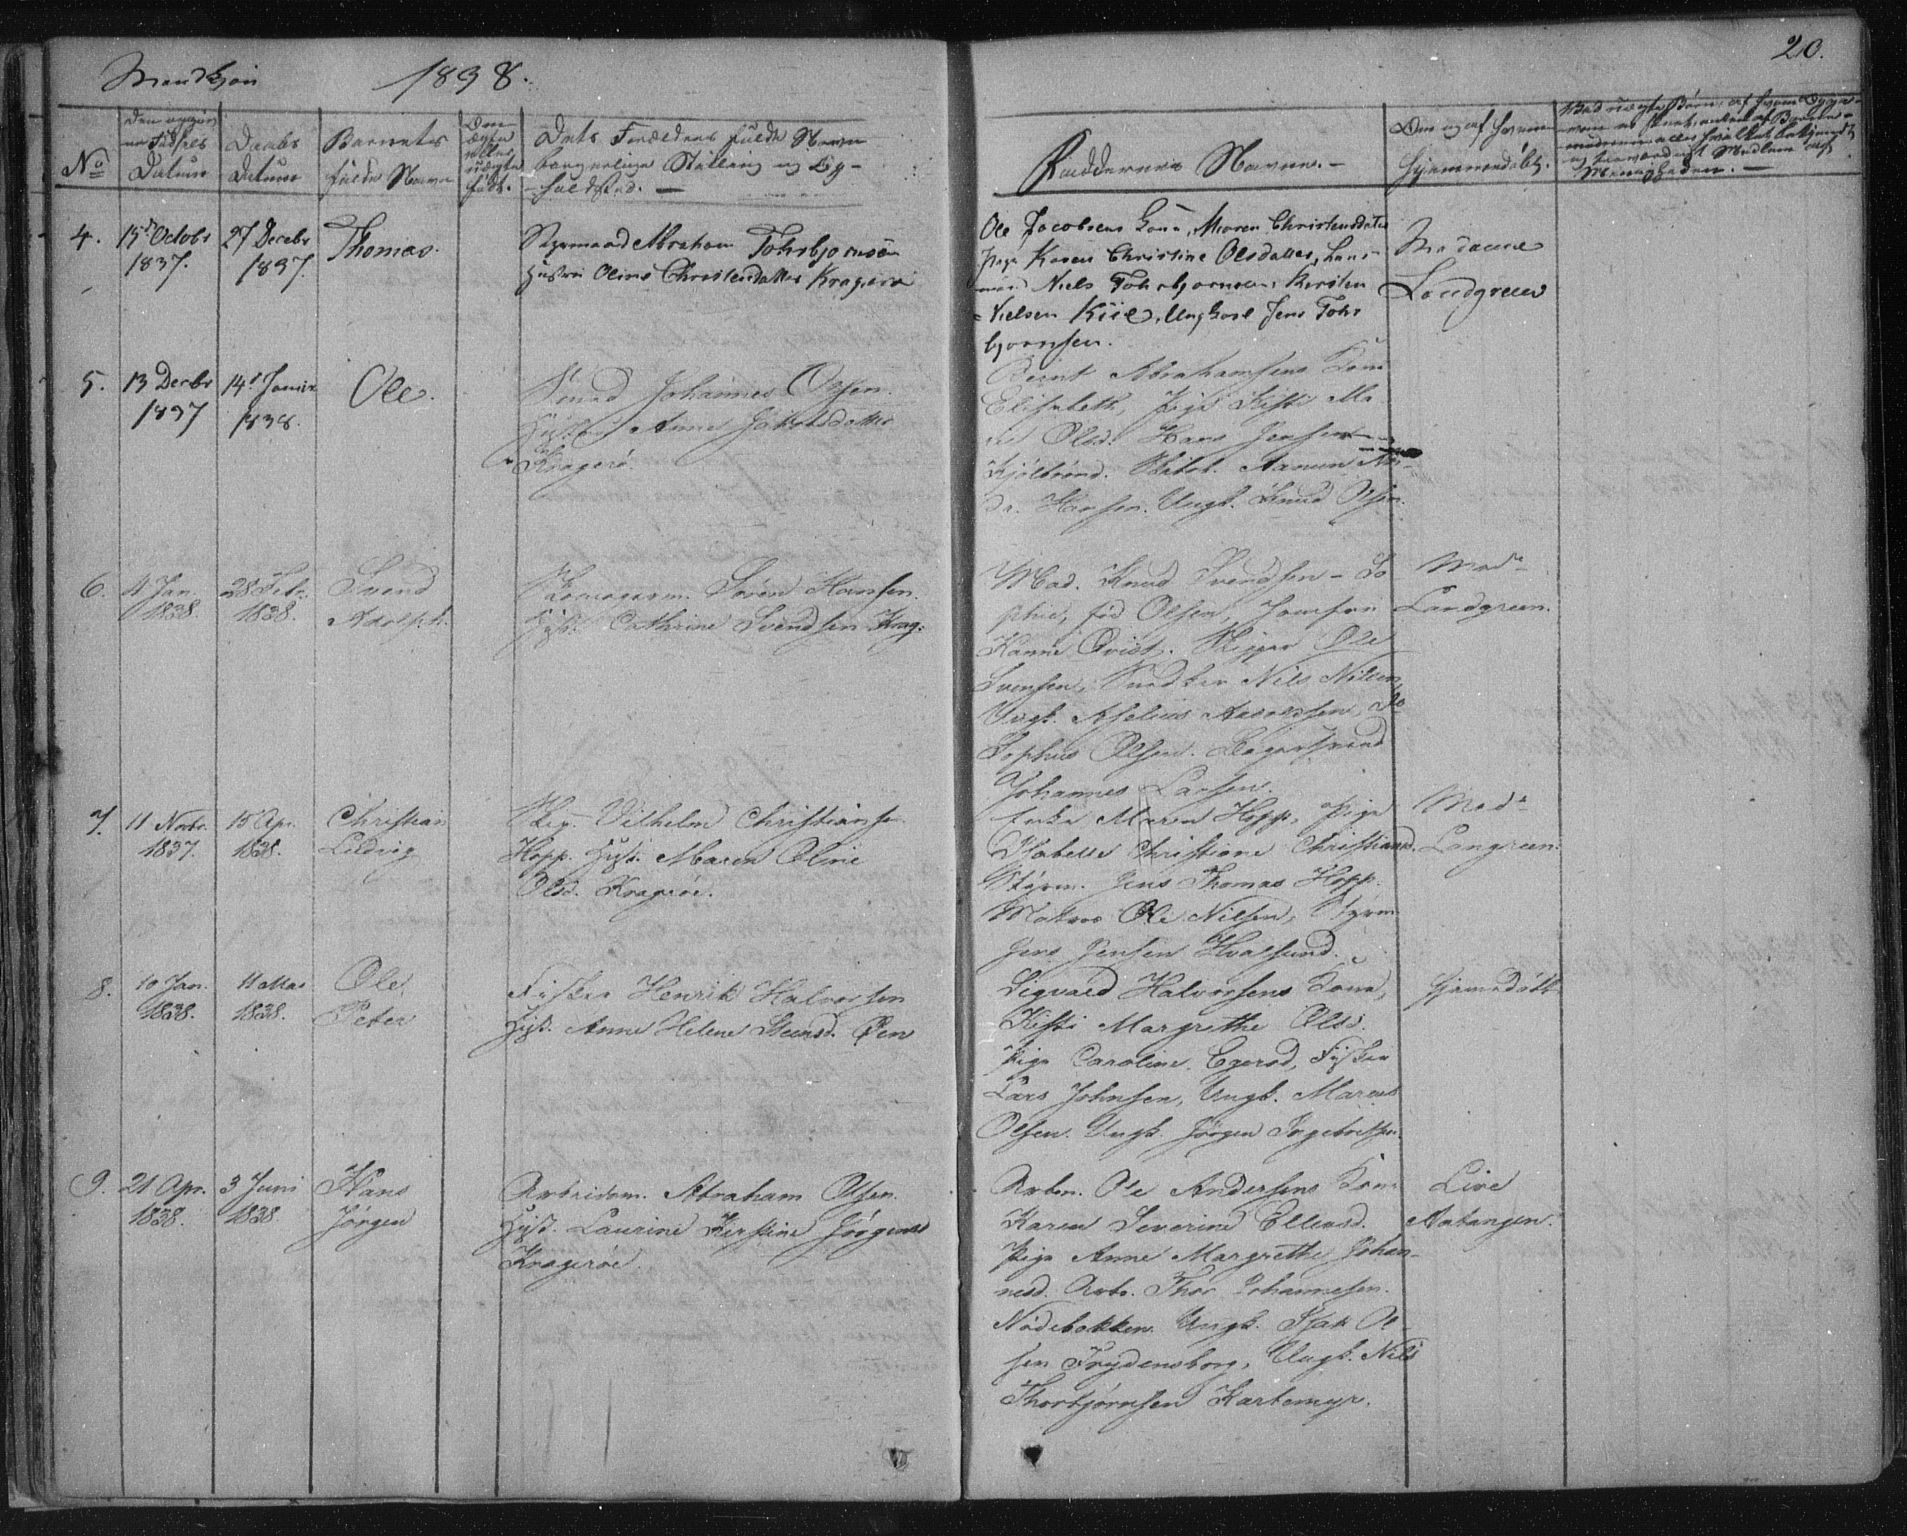 Mandkjøn 1838.
20.
No
Den opgivne Fødsels Datum
Daabs Datum
Barnets fulde Navn
Dets Forældres fulde Navne
borgerlige Stilling og Op-
holdsted. —
Faddernes Navne. —
Om og af hvem
hjemmedøbt.
Menigheden. —
4. 15de Octobr 1837. 27 Decebr 1837. Thomas.
Abraham Tohrbjornsen
Hustru Oline Christensdatter Kragerø
Ole Jacobsens Kone, Maren Christensdatter
Pige Karen Christine Olsdatter,
Niels Tohrbjornsen, Kirsten
Nielsen Kiil, Ungkarl Jens Tohr
bjornsen.
Madame
Landgreen
5. 13 Decbr 1837 14de Januar 1838. Ole.
Johannes Olsen.
Hust. Anne Jakobsdatter
Kragerø.
Bernt Abrahamsens Kone
Elisabeth, Pige Kisti Ma
rie Olsd. Hans Jensen
Aanun
Hansen. Ungk. Knud Olsen.
6. 4 Jan. 1838. 28 Febr. 1838. Svend Adolph.
Søren Hansen.
Hust. Cathrine Svendsen Krag.
Mad. Knud Svendsen - So
phie, fød Olsen, Jomfru
Hanne Qvist. Skipper Ole
Svensen, Nils Nilsen,
Ungk. Aselius Andersen, Do
Sophus Olsen. Borgersvend
Johannes Larsen.
Made
Landgreen.
7. 11 Novbr. 1837. 15 Apr. 1838. Christian Ludvig
Vilhelm Christiansen
Hopp. Hust. Maren Oline
Olsd. Kragerøe.
Enke Maren Hopp, Pige
Isabelle Christiane Christiansd.
Styrm. Jens Thomas Hopp.
Matros Ole Nilsen, Styrm
Jens Jensen Hvalsund.
Made
Langreen.
8. 10 Jan. 1838. 11 Mai 1838. Ole Peter
Fisker Henrik Halvorsen
Hust. Anne Helene Steensd. Øen
Sigvald Halvorsens Kone,
Kisti Margrethe Olsd.
Pige Caroline Egerod, Fisker
Lars Johnsen, Ungk. Marcus
Olsen. Ungk. Jørgen Ingebretsen.
Hjemmedøbt
9. 21 Apr. 1838. 3 Juni 1838. Hans Jørgen
Arbeidsm. Abraham Olsen.
Hust. Laurine Kirstine Jørgensd
Kragerøe.
Arbm. Ole Andersens Kone
Karen Severine Ellensd.
Pige Anne Margrethe Johan-
nesd. Arbm. Thor Johannesen.
Nødebakken. Ungk. Isak Ol-
sen Frydensborg, Ungk. Nils
Thorbjørnsen Kartemyr.
Live
Aatangen.